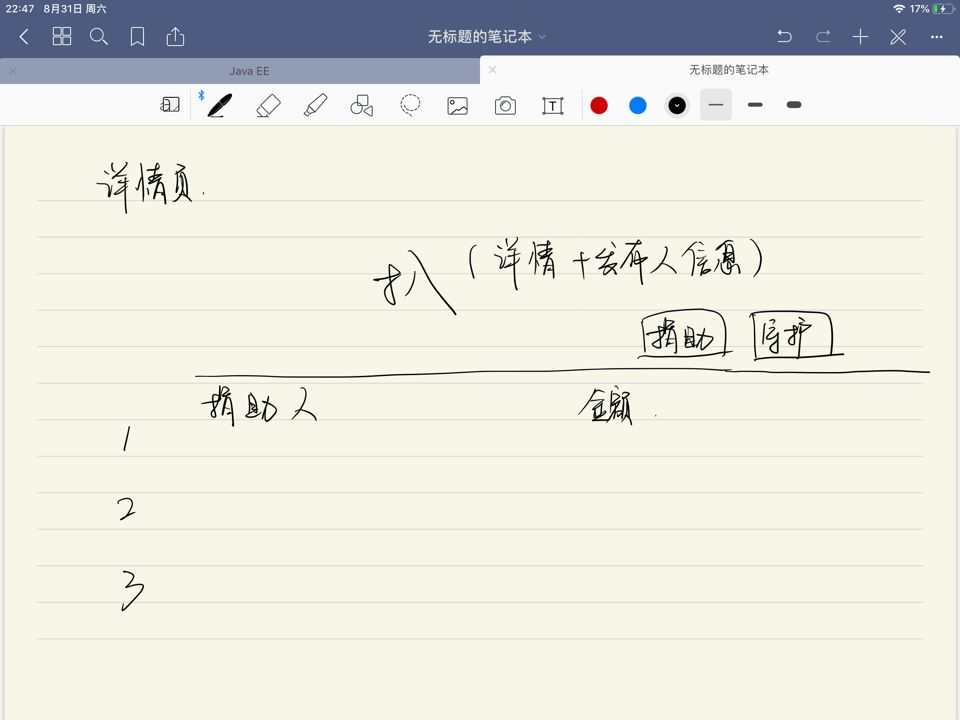 22:47 8月31日 周六 17%
无标题的笔记本
Java EE 无标题的笔记本
T
详情页.
(详情+发布人信息)
捐助 守护
捐助人 金额.
1
2
3